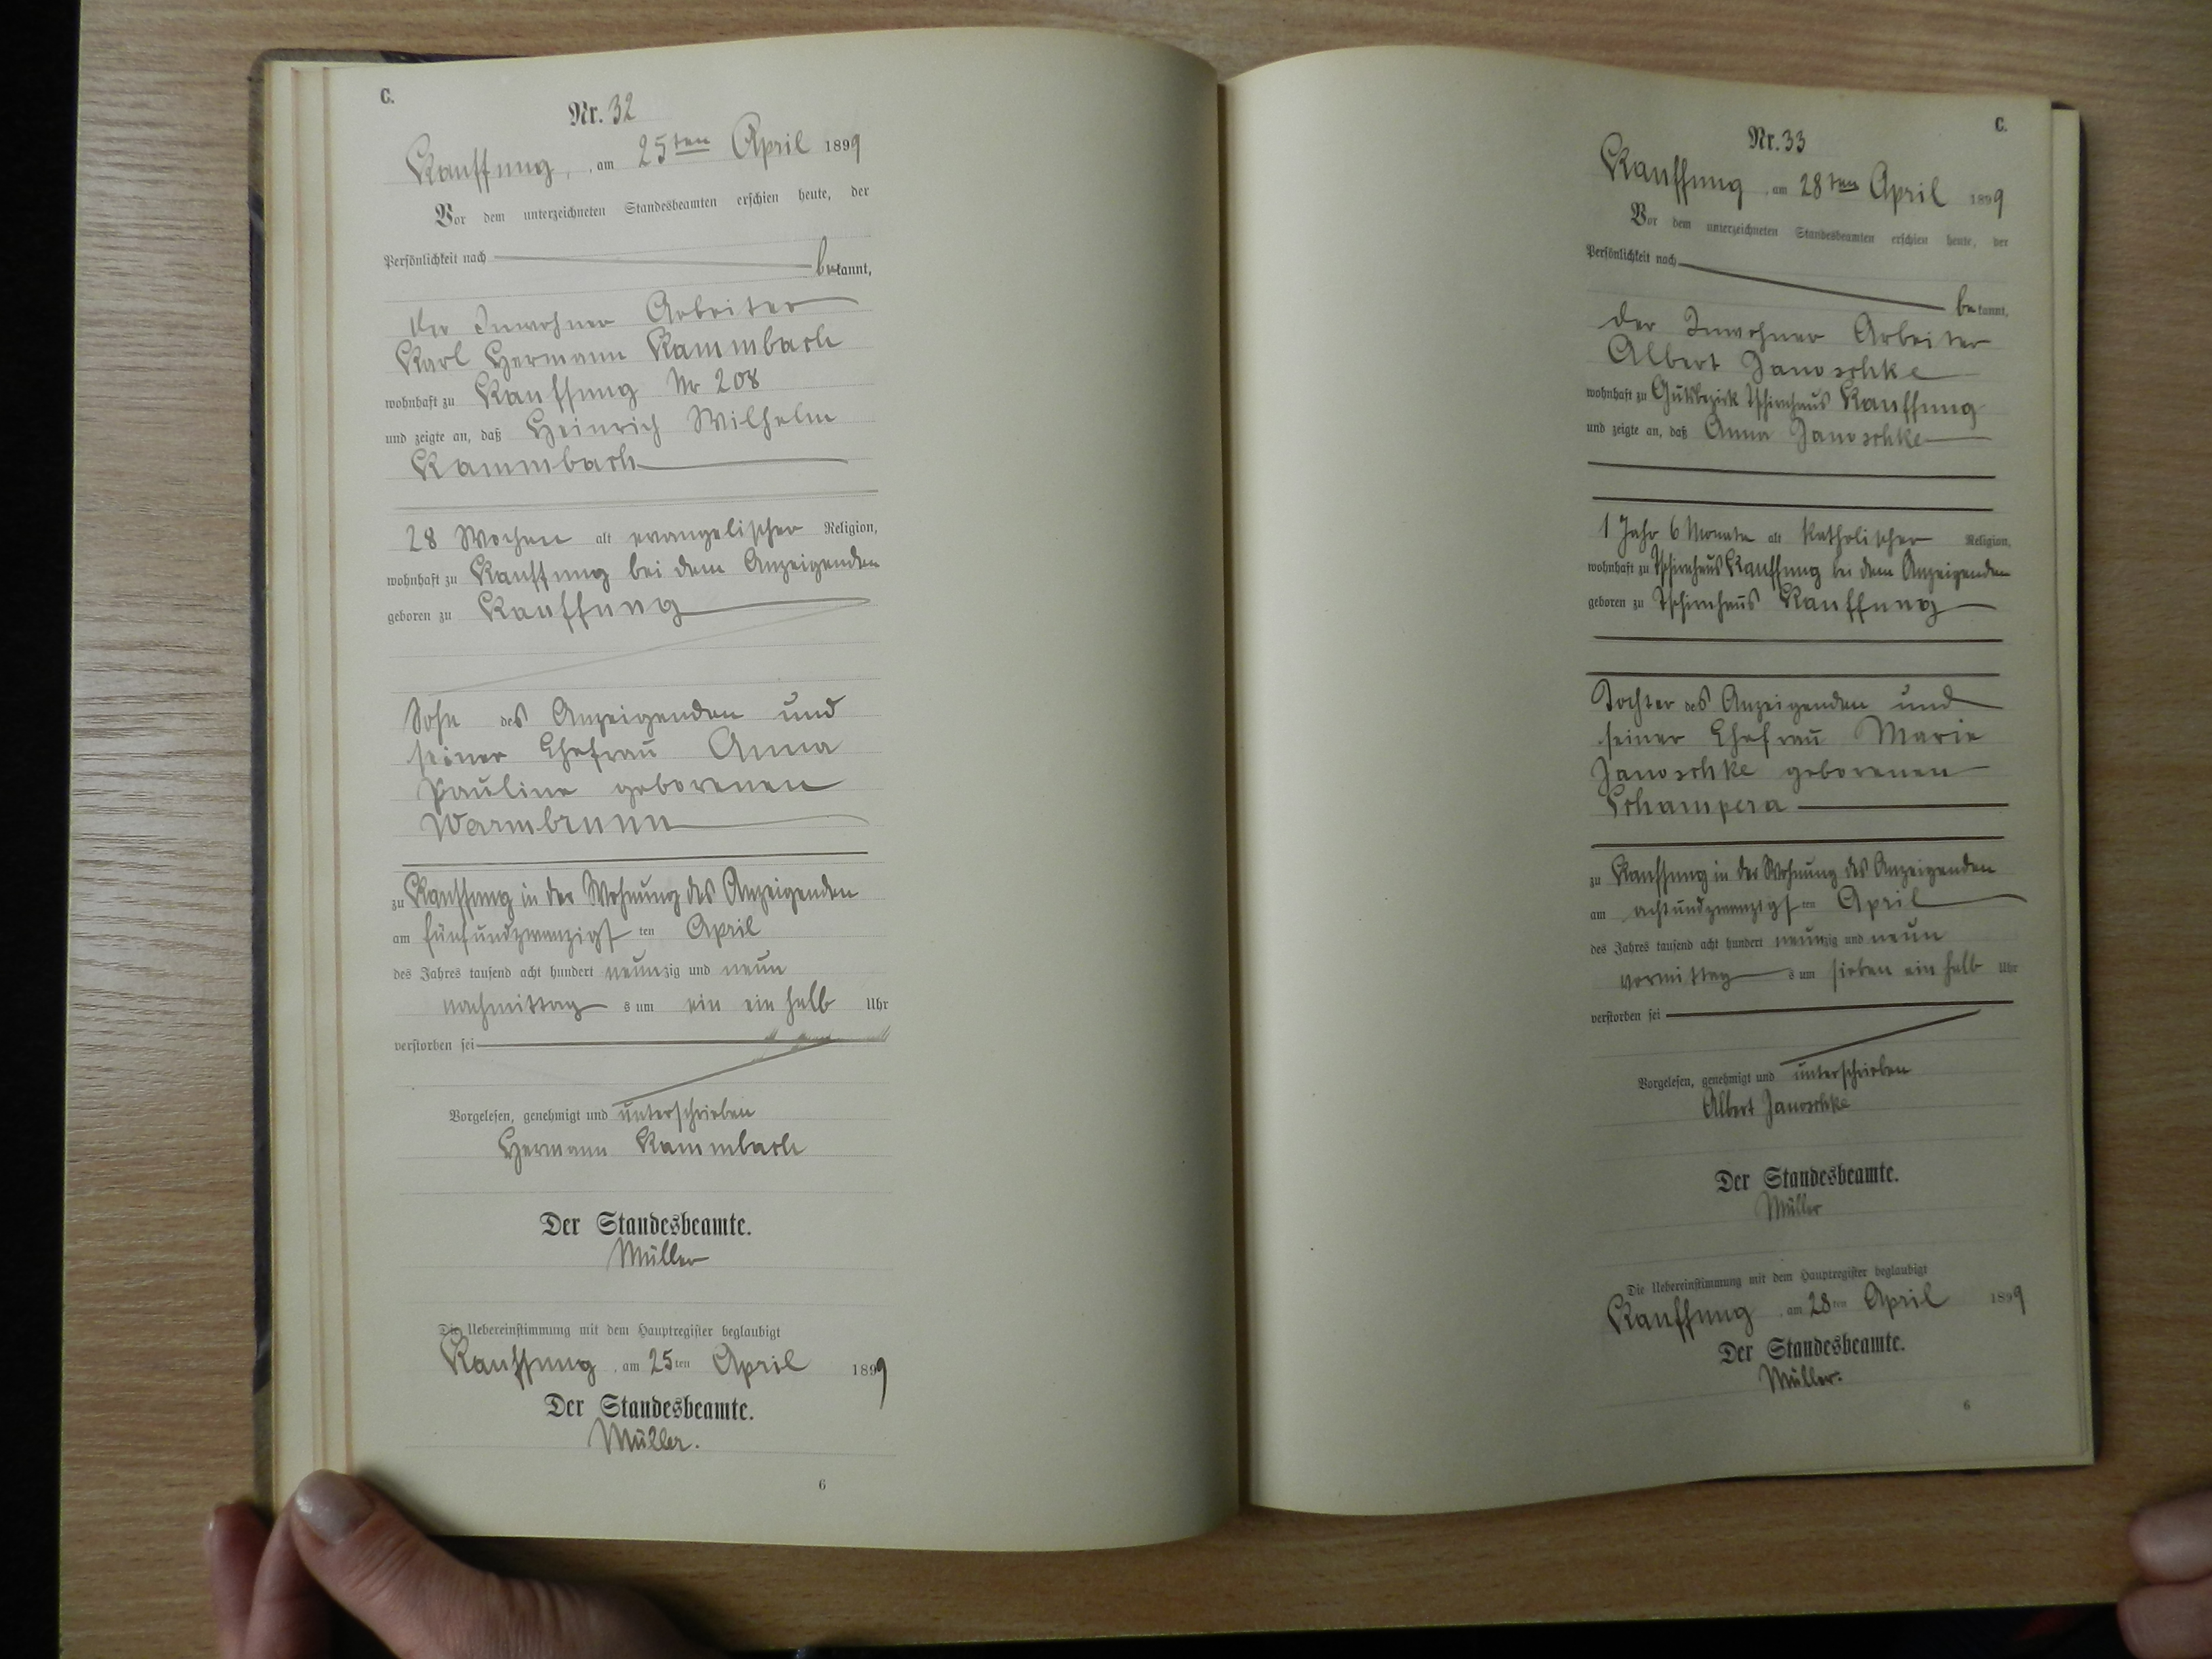 C.
Nr. 32
Kauffung, am 25ten April 1899
Vor dem unterzeichneten Standesbeamten erschien heute, der
Persönlichkeit nach
bekannt,
der Inwohner Arbeiter
Karl Hermann Kammbach
wohnhaft zu Kauffung Nr 208
und zeigte an, daß Heinrich Wilhelm
Kammbach
28 Wochen alt evangelischer Religion,
wohnhaft zu Kauffung bei dem Anzeigenden
geboren zu Kauffung
Sohn des Anzeigenden und
seiner Ehefrau Anna
Pauline geborenen
Warmbrunn
zu Kauffung in der Wohnung des Anzeigenden
am fünfundzwanzigsten April
des Jahres tausend acht hundert neunzig und neun
nachmittags um ein ein halb Uhr
verstorben sei
Vorgelesen, genehmigt und unterschrieben
Hermann Kammbach
Der Standesbeamte.
Müller
Die Uebereinstimmung mit dem Hauptregister beglaubigt
Kauffung, am 25ten April 1899
Der Standesbeamte.
Müller.
6
C.
Nr. 33
Kauffung, am 28ten April 1899
Vor dem unterzeichneten Standesbeamten erschien heute, der
Persönlichkeit nach
bekannt,
der Inwohner Arbeiter
Albert Janoschke
wohnhaft zu Gutsbezirk Tschirnhaus Kauffung
und zeigte an, daß Anna Janoschke
1 Jahr 6 Monate alt katholischer Religion,
wohnhaft zu Tschirnhaus Kauffung bei dem Anzeigenden
geboren zu Tschirnhaus Kauffung
Tochter des Anzeigenden und
seiner Ehefrau Marie
Janoschke geborenen
Schampera
zu Kauffung in der Wohnung des Anzeigenden
am achtundzwanzigsten April
des Jahres tausend acht hundert neunzig und neun
vormittags um sieben ein halb Uhr
verstorben sei
Vorgelesen, genehmigt und unterschrieben
Albert Janoschke
Der Standesbeamte.
Müller
Die Uebereinstimmung mit dem Hauptregister beglaubigt
Kauffung, am 28ten April 1899
Der Standesbeamte.
Müller.
6